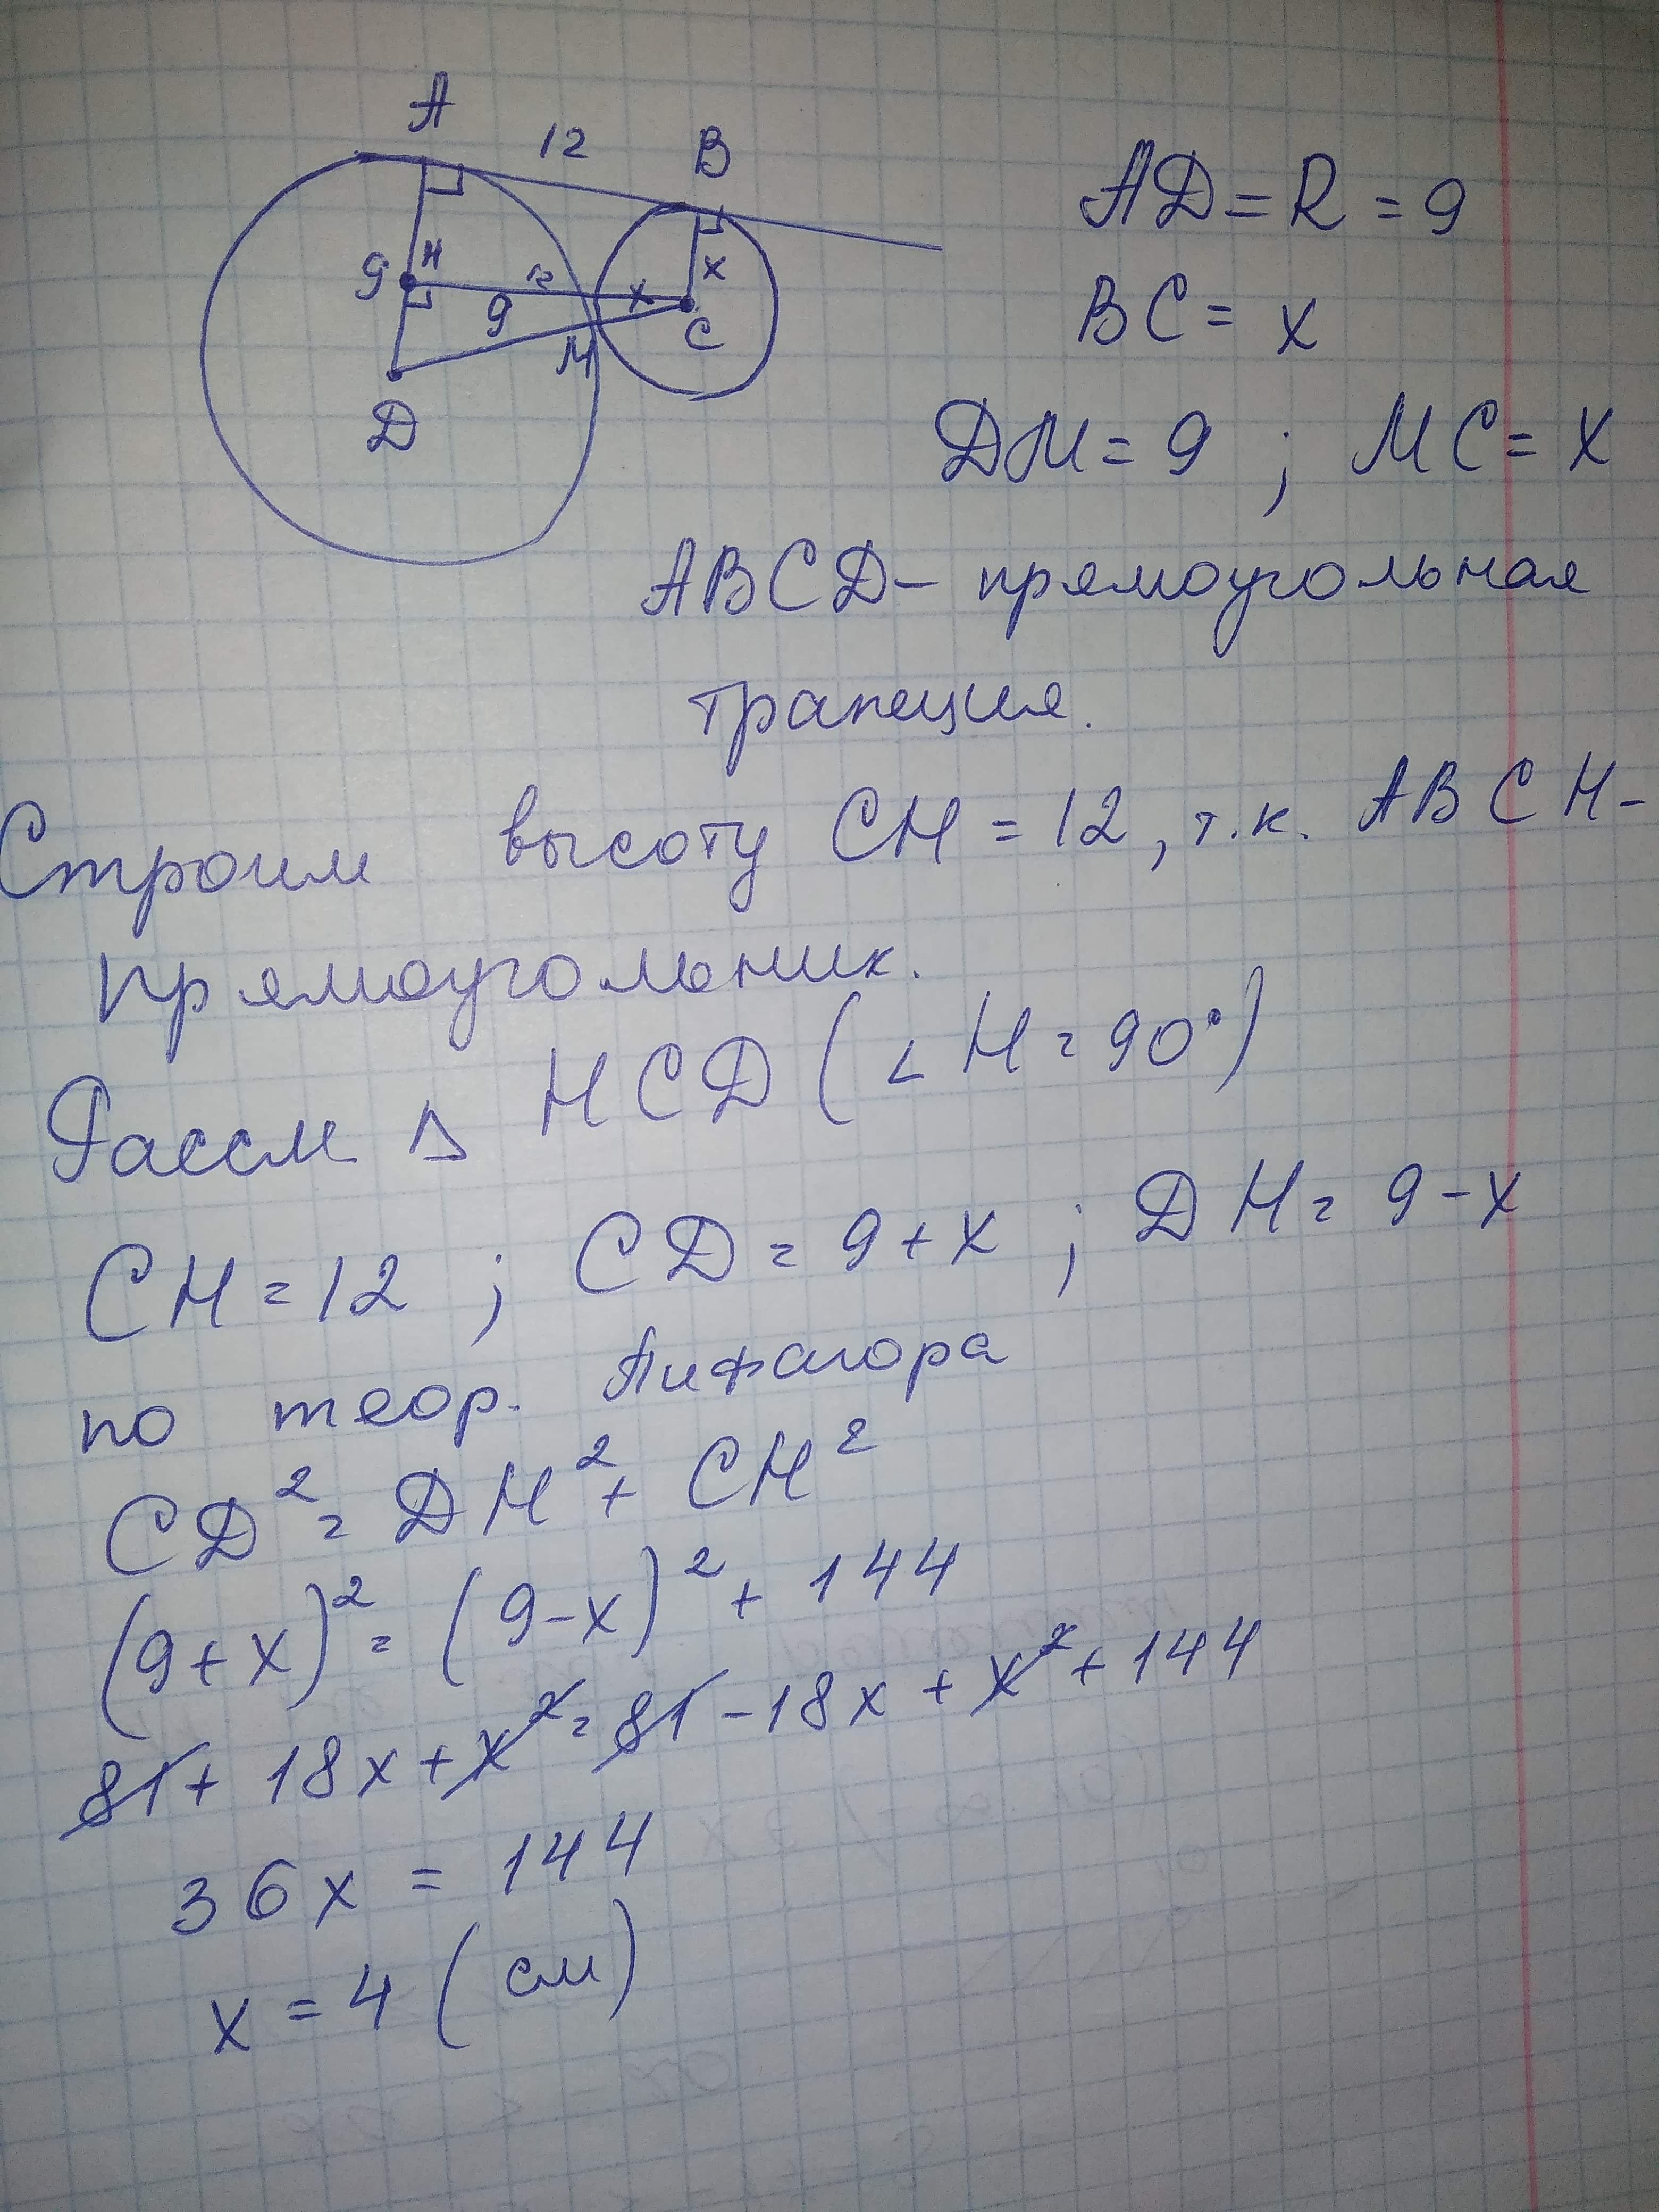 A
12
B
AD = R = 9
9
H
12
x
x
9
C
BC = x
M
D
DM = 9 ; MC = x
ABCD – прямоугольная
трапеция.
Строим высоту CH = 12, т.к. ABCH –
прямоугольник.
Рассм △ HCD (∠ H = 90°)
CH = 12 ; CD = 9 + x ; DH = 9 - x
по теор. Пифагора
CD² = DH² + CH²
(9 + x)² = (9 - x)² + 144
81 + 18x + x² = 81 - 18x + x² + 144
36x = 144
x = 4 (см)